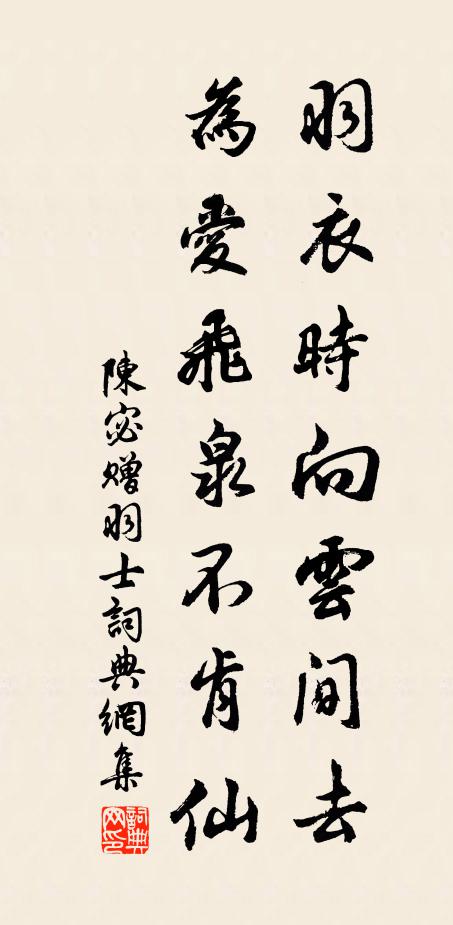 羽衣時向雲間去
為愛飛泉不肯仙
陳宓贈羽士詞典網集
詞典網印